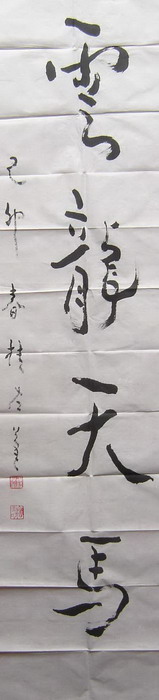 雲龍天馬
己卯春桂岑書